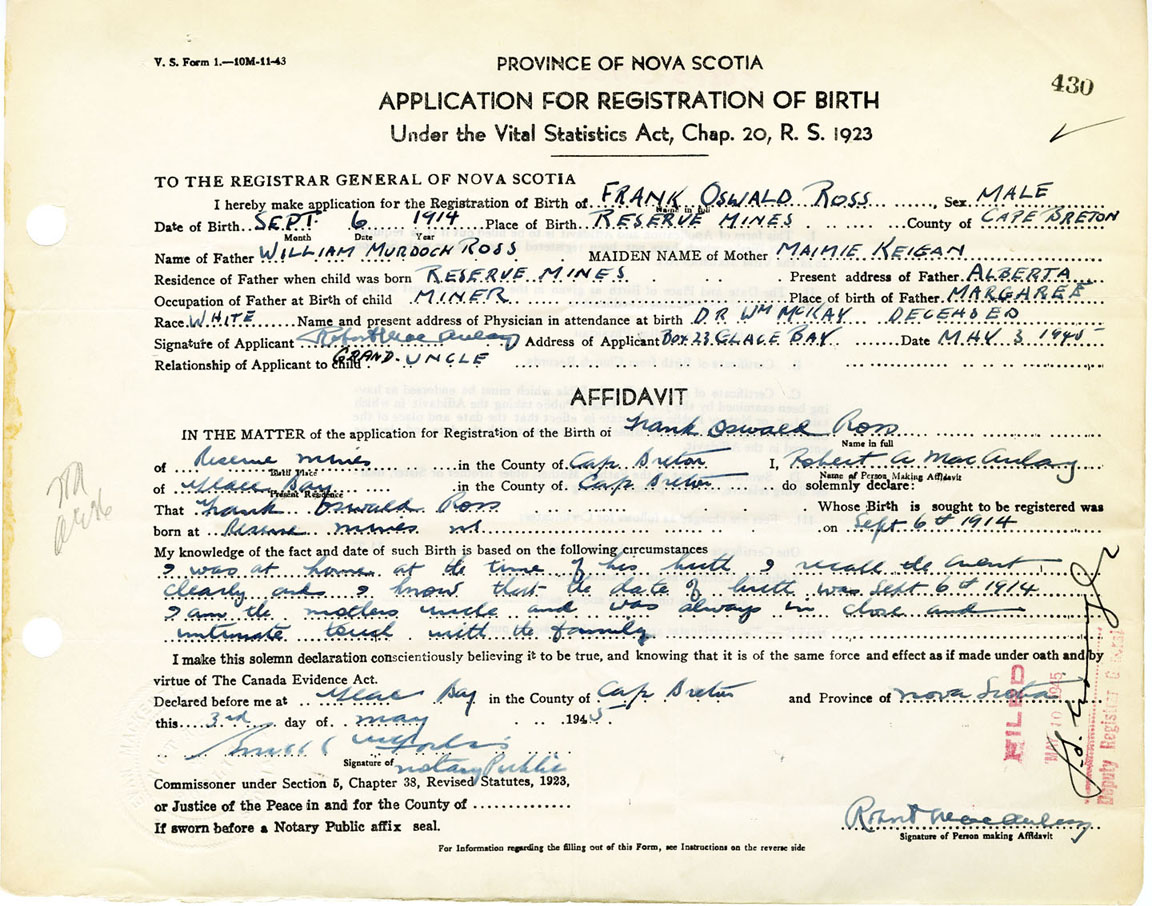 V. S. Form 1.—10M-11-43
PROVINCE OF NOVA SCOTIA
430
APPLICATION FOR REGISTRATION OF BIRTH
Under the Vital Statistics Act, Chap. 20, R. S. 1923
TO THE REGISTRAR GENERAL OF NOVA SCOTIA
I hereby make application for the Registration of Birth of FRANK OSWALD ROSS Sex MALE
Name in full
Date of Birth SEPT. 6 1914 Place of Birth RESERVE MINES County of CAPE BRETON
Month Date Year
Name of Father WILLIAM MURDOCH ROSS MAIDEN NAME of Mother MAIMIE KEIGAN
Residence of Father when child was born RESERVE MINES Present address of Father ALBERTA
Occupation of Father at Birth of child MINER Place of birth of Father MARGAREE
Race WHITE Name and present address of Physician in attendance at birth DR WM MCKAY DECEASED
Signature of Applicant Robert MacAulay Address of Applicant Box 23 GLACE BAY Date MAY 3 1945
Relationship of Applicant to child GRAND-UNCLE
AFFIDAVIT
IN THE MATTER of the application for Registration of the Birth of Frank Oswald Ross
Name in full
of Reserve Mines in the County of Cap Breton I, Robert A MacAulay
Birth Place Name of Person Making Affidavit
of Glace Bay in the County of Cap Breton do solemnly declare:
Present Residence
That Frank Oswald Ross Whose Birth is sought to be registered was
born at Reserve Mines NS on Sept 6th 1914
My knowledge of the fact and date of such Birth is based on the following circumstances
I was at home at the time of his birth I recall the event
clearly and I know that the date of birth was Sept 6th 1914
I am the mothers uncle and was always in close and
intimate touch with the family
I make this solemn declaration conscientiously believing it to be true, and knowing that it is of the same force and effect as if made under oath and by
virtue of The Canada Evidence Act.
Declared before me at Glace Bay in the County of Cap Breton and Province of Nova Scotia
this 3rd day of May 1945.
Signature of Notary Public
Commissoner under Section 5, Chapter 38, Revised Statutes, 1923,
or Justice of the Peace in and for the County of
If sworn before a Notary Public affix seal.
Robert MacAulay
Signature of Person making Affidavit
For Information regarding the filling out of this Form, see Instructions on the reverse side
FILED
MAY 10 1945
Deputy Registrar General